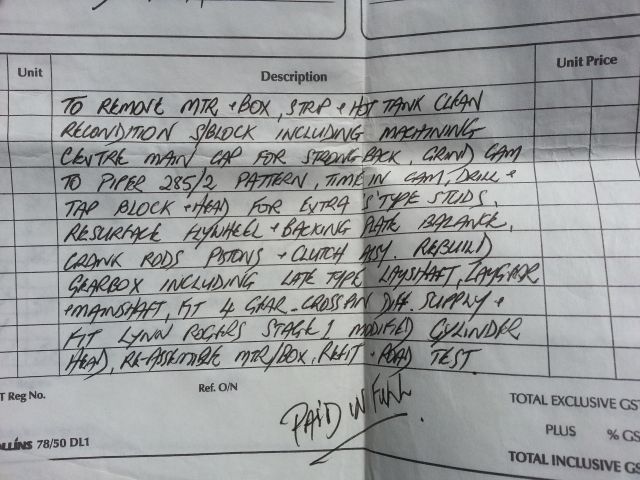 Unit Description Unit Price
TO REMOVE MTR + BOX, STRIP + HOT TANK CLEAN
RECONDITION S/BLOCK INCLUDING MACHINING
CENTRE MAIN CAP FOR STRONGBACK, GRIND CAM
TO PIPER 285/2 PATTERN, TIME IN CAM, DRILL +
TAP BLOCK + HEAD FOR EXTRA 'S' TYPE STUDS.
RESURFACE FLYWHEEL + BACKING PLATE BALANCE,
CRANK RODS PISTONS + CLUTCH ASY. REBUILD
GEARBOX INCLUDING LATE TYPE LAYSHAFT, LAYGEAR
+ MAINSHAFT, FIT 4 GEAR - CROSSPIN DIFF. SUPPLY +
FIT LYNN ROGERS STAGE 1 MODIFIED CYLINDER
HEAD, RE-ASSEMBLE MTR/BOX, REFIT + ROAD TEST.
T Reg No. Ref. O/N
PAID IN FULL.
TOTAL EXCLUSIVE GS
PLUS % GS
OLLINS 78/50 DL1
TOTAL INCLUSIVE GS